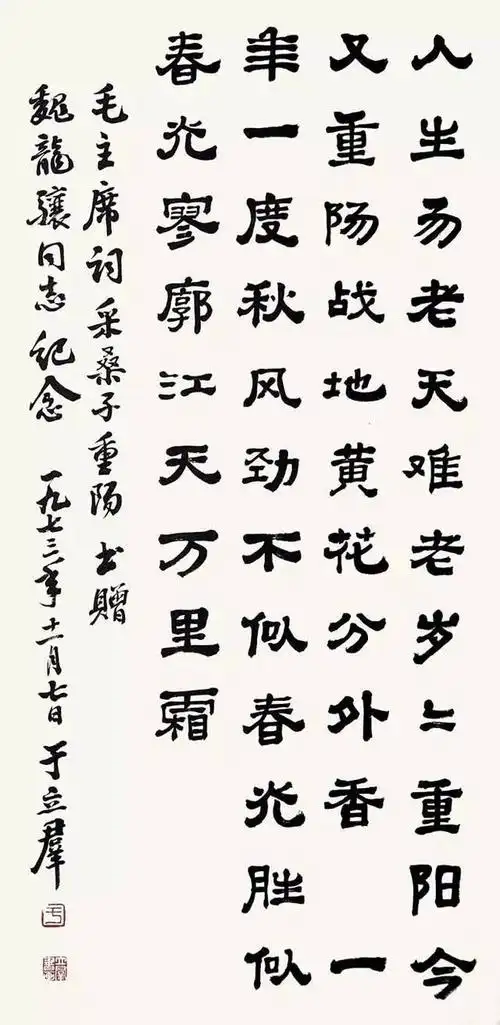 人生易老天难老岁々重阳今
又重阳战地黄花分外香 一
年一度秋风劲不似春光胜似
春光寥廓江天万里霜
毛主席词采桑子重阳 书贈
魏龍骧同志纪念 一九七三年十一月七日 于立羣